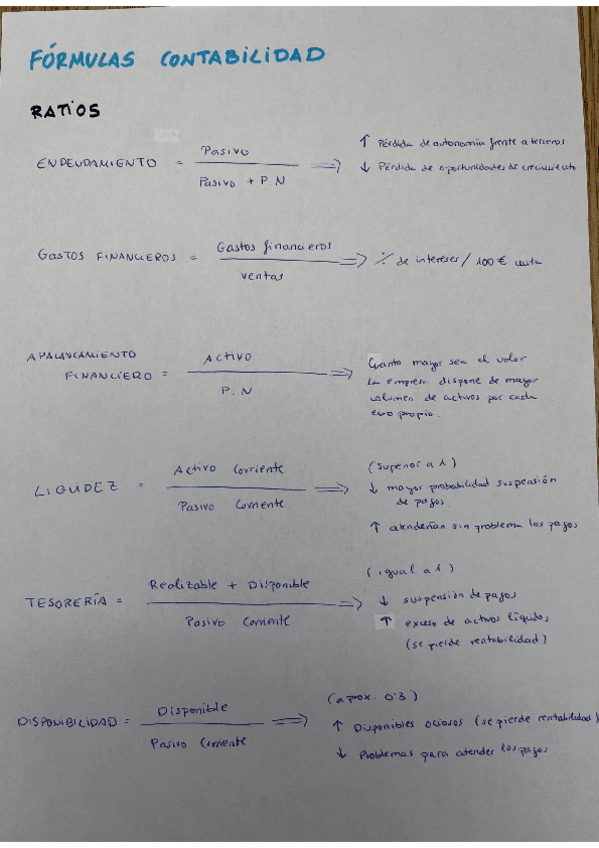 FÓRMULAS CONTABILIDAD
RATIOS
ENDEUDAMIENTO = Pasivo / Pasivo + P.N ⇒ ↑ Pérdida de autonomía frente a terceros
↓ Pérdida de oportunidades de crecimiento
GASTOS FINANCIEROS = Gastos financieros / ventas ⇒ % de intereses / 100 € venta
APALANCAMIENTO
FINANCIERO = Activo / P.N ⇒ Cuanto mayor sea el valor
la empresa dispone de mayor
volumen de activos por cada
euro propio.
LIQUIDEZ = Activo Corriente / Pasivo Corriente ⇒ (superior a 1)
↓ mayor probabilidad suspensión
de pagos.
↑ atenderían sin problema los pagos
TESORERÍA = Realizable + Disponible / Pasivo Corriente ⇒ (igual a 1)
↓ suspensión de pagos
↑ exceso de activos líquidos
(se pierde rentabilidad)
DISPONIBILIDAD = Disponible / Pasivo Corriente ⇒ (aprox. 0'3)
↑ Disponibles ociosos (se pierde rentabilidad)
↓ Problemas para atender los pagos